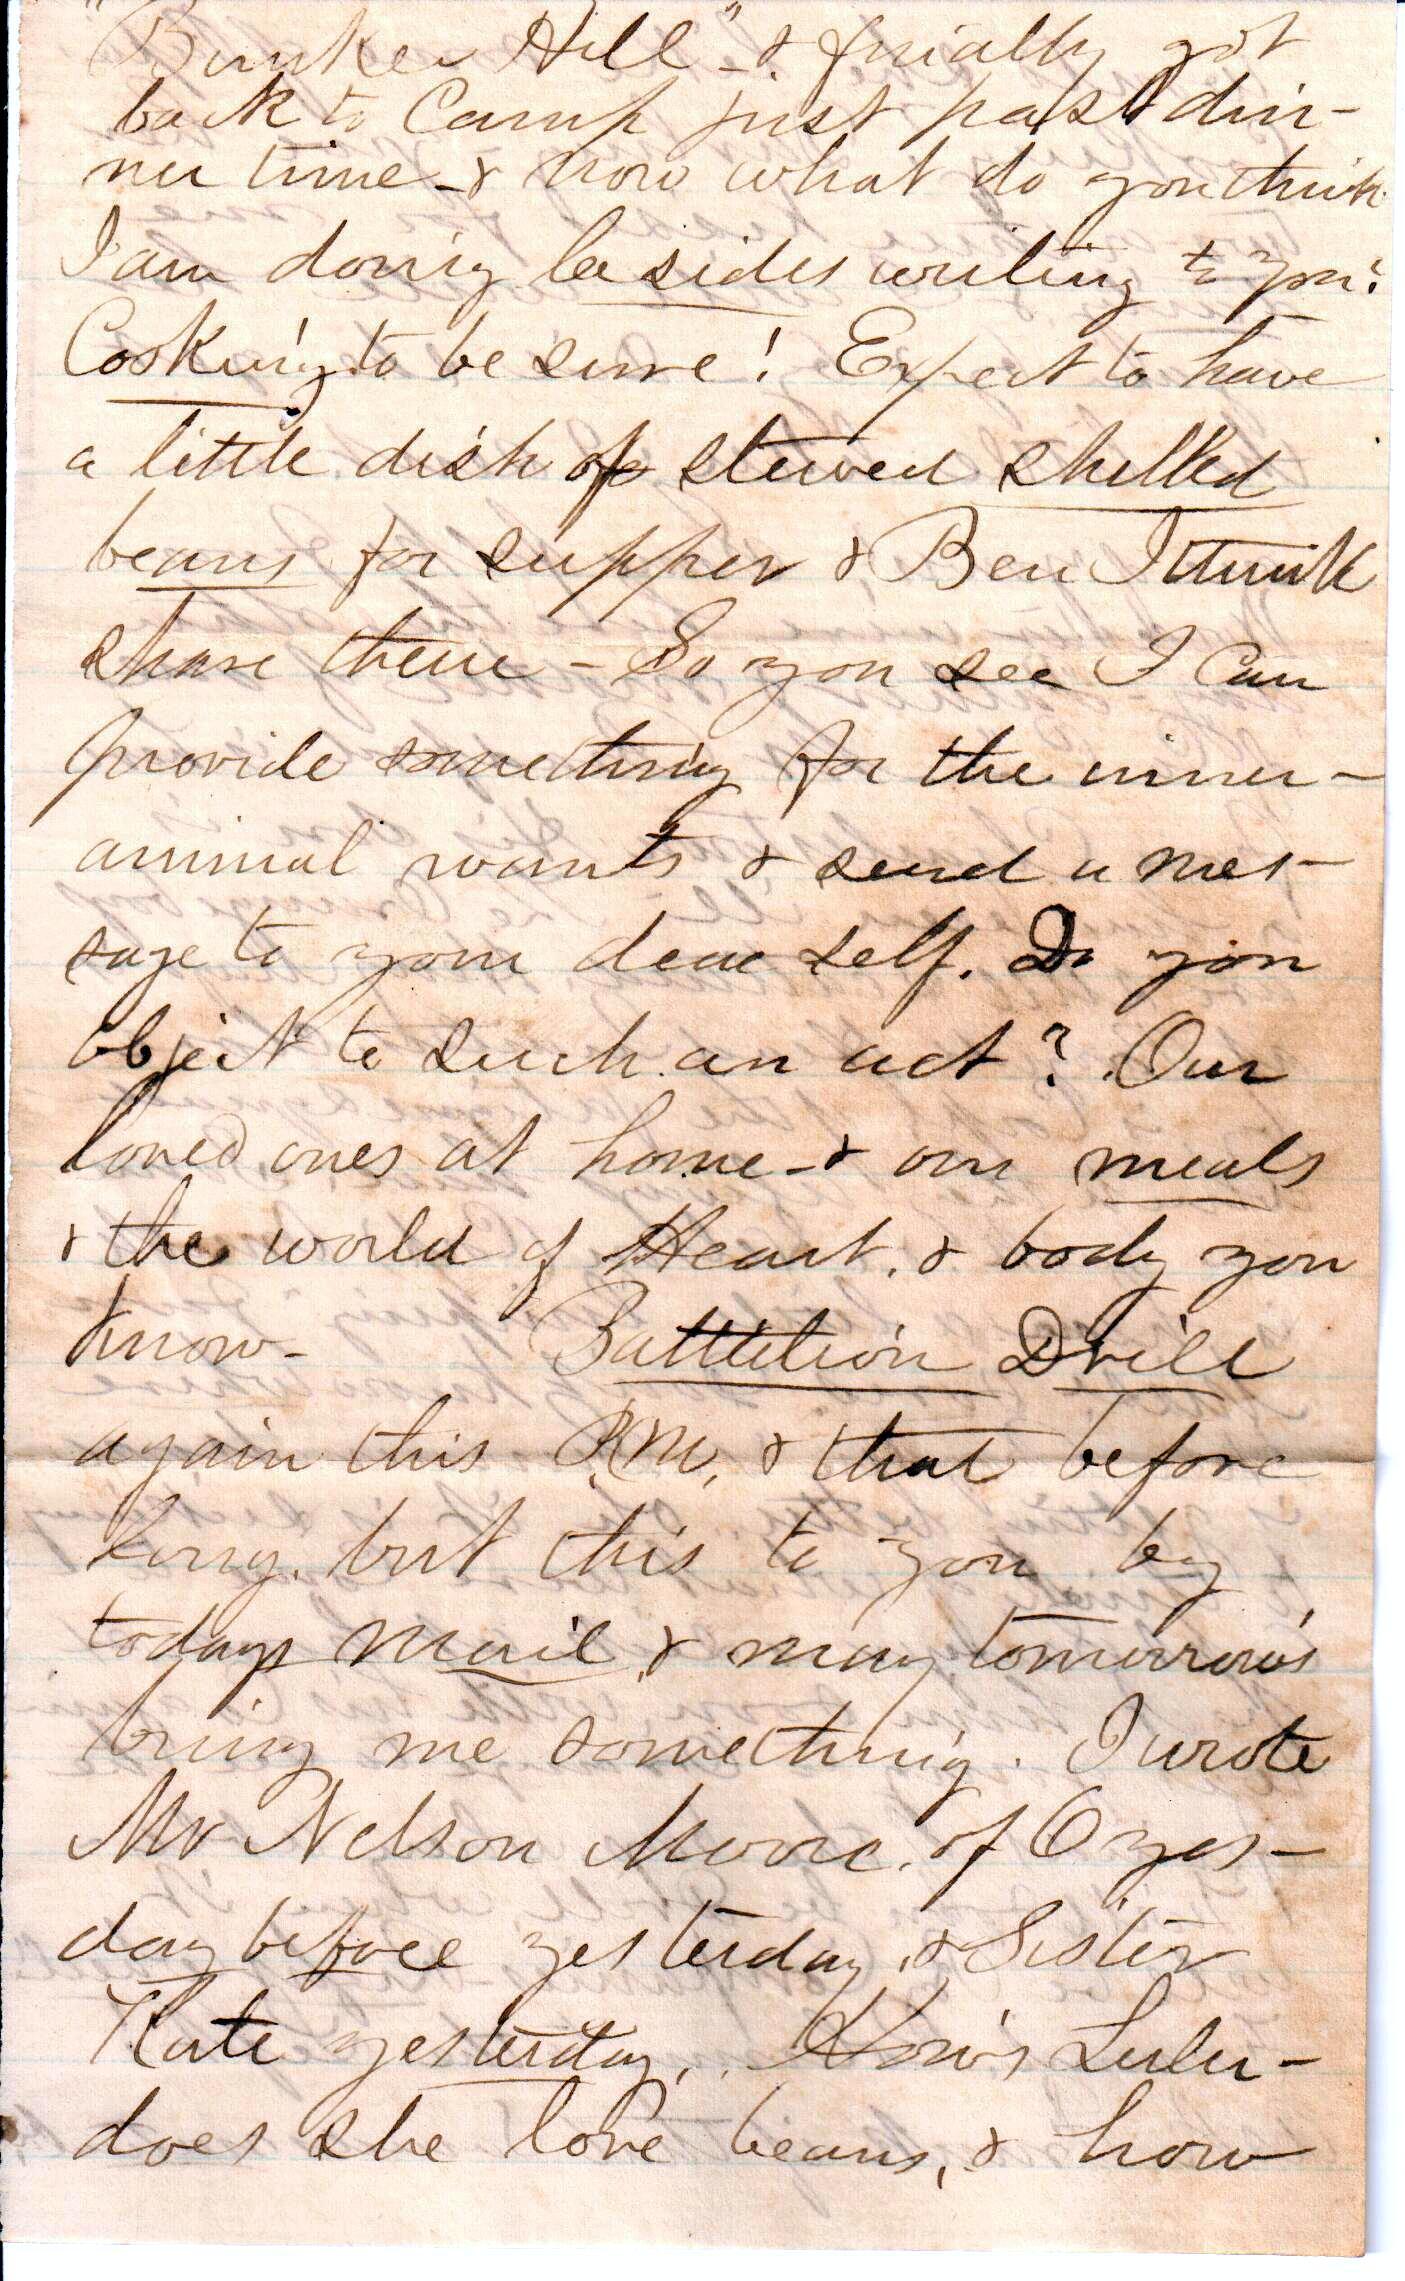 "Bunker Hill" - & finially got
back to Camp just past din-
ner time - & now what do you think
I am doing besides writing to you?
Cooking to be sure! Expect to have
a little dish of stewed shelled
beans for supper & Ben I think
share them - So you see I can
provide something for the inner-
animal wants & send a mes-
sage to your dear self. Do you
object to such an act? Our
loved ones at home - & our meals
& the world of Heart, & body you
know - Battelion Drill
again this P.M. & that before
long. but this to you by
todays mail, & may tomorrow's
bring me something. I wrote
Mr Nelson Moore, of O yes-
day before yesterday, & Sister
Kate yesterday. How's Lulu -
does she love beans, & how